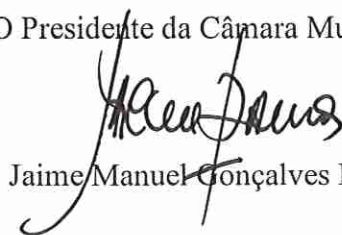 O Presidente da Câmara Mu
Jaime Manuel Gonçalves